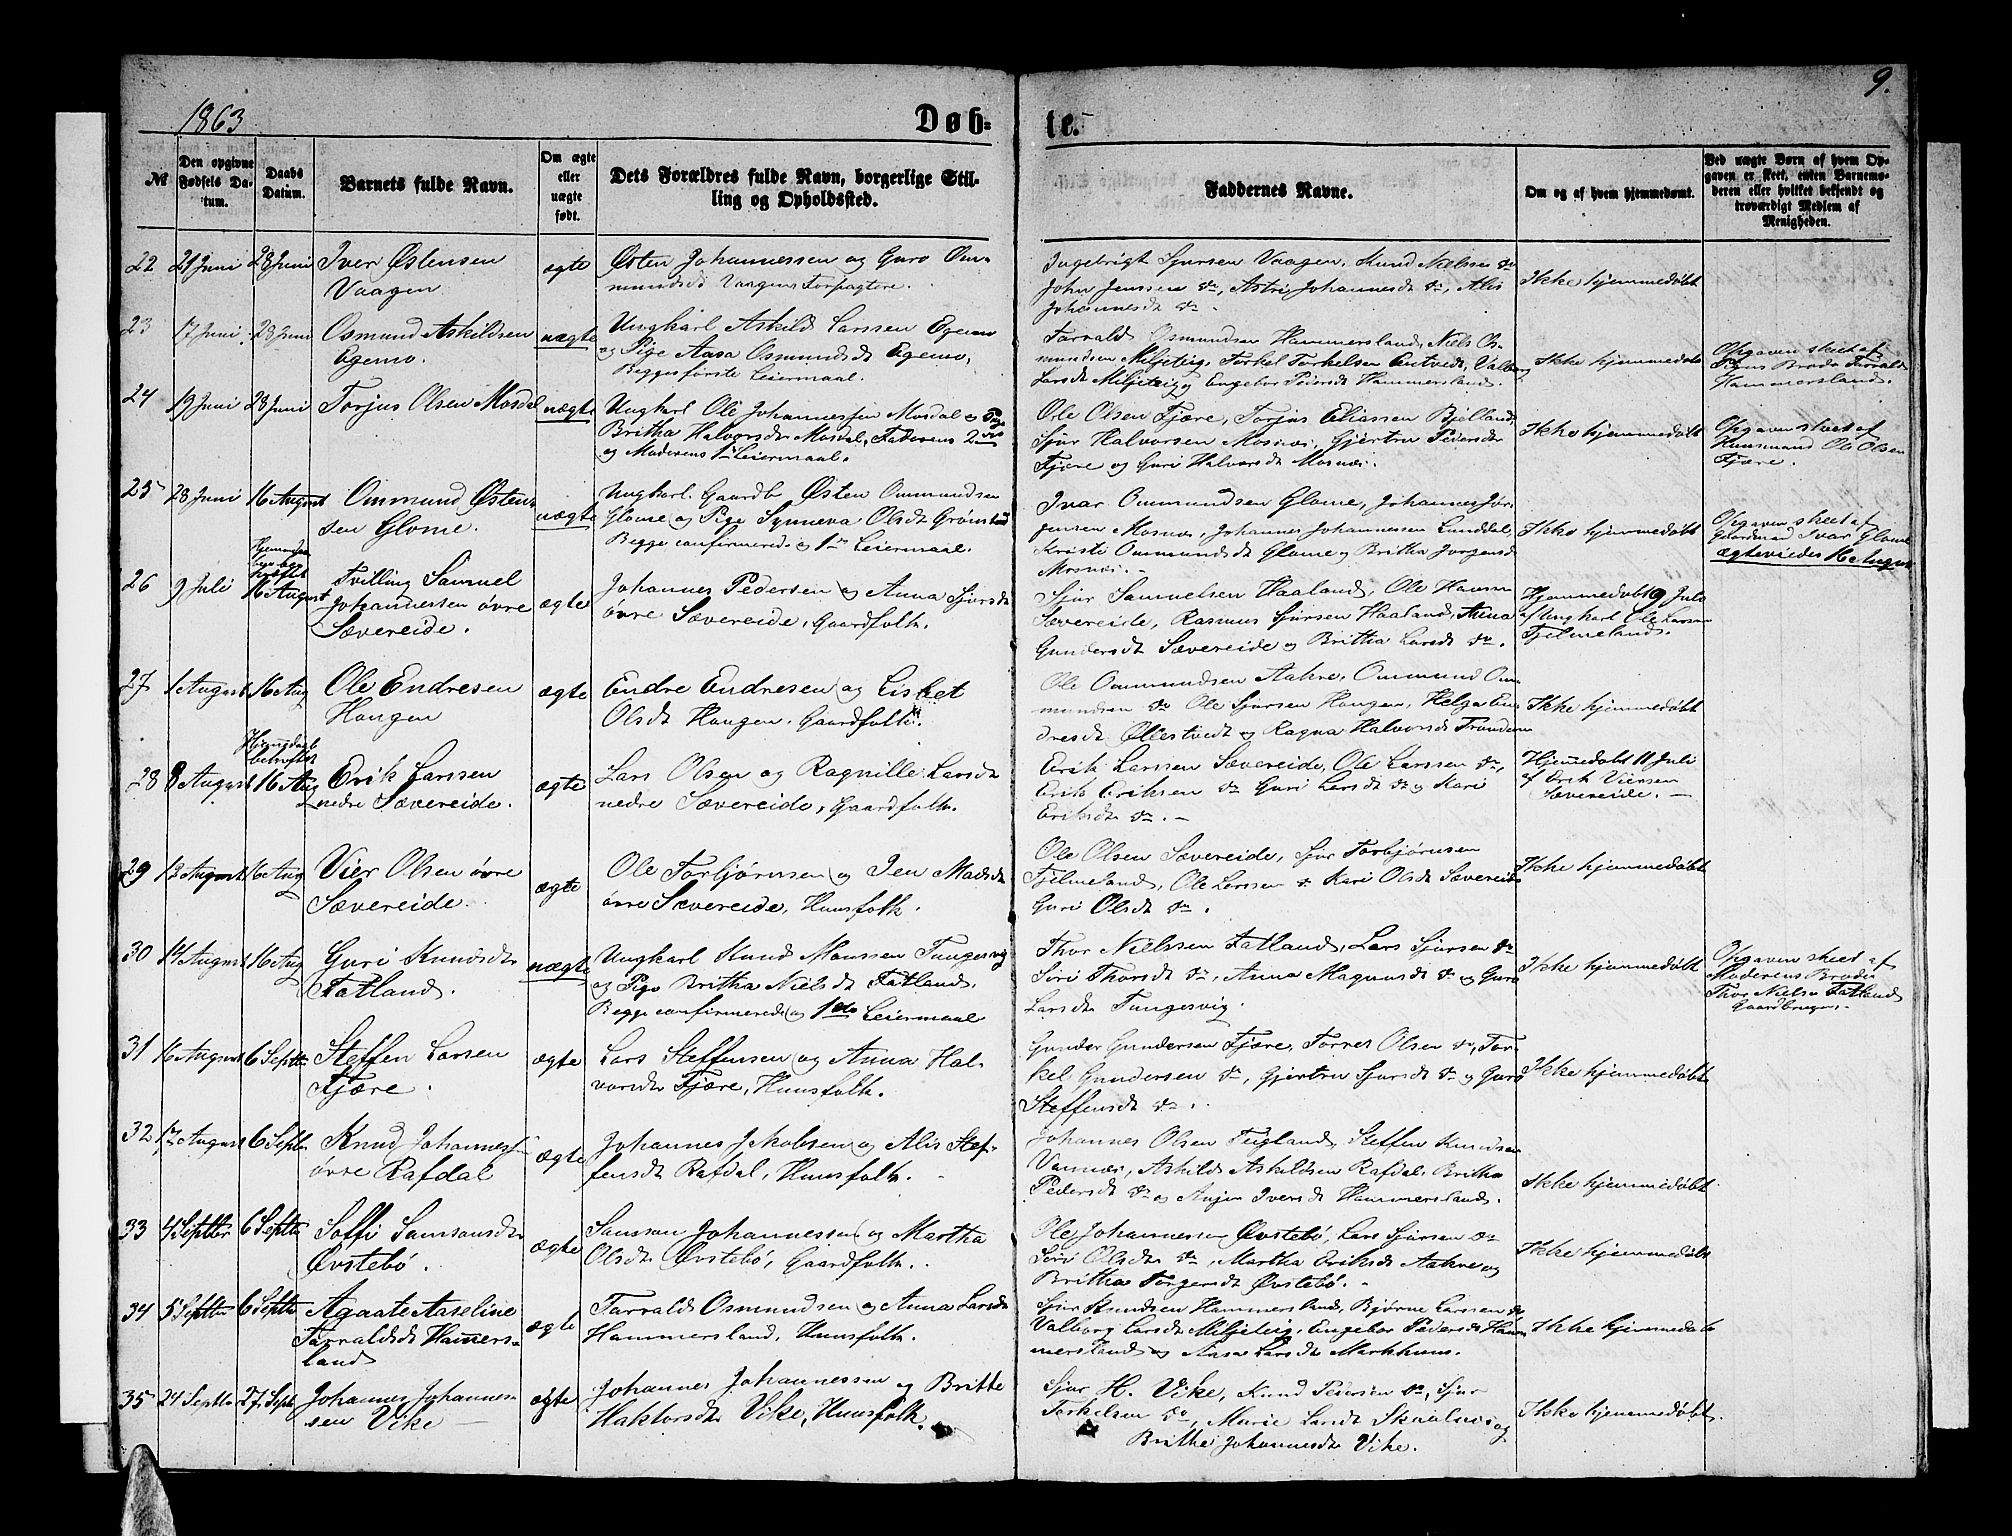 1863
Døb=
te.
9.
№
Den opgivne Fødsels Datum.
Daabs Datum.
Barnets fulde Navn.
Om ægte eller uægte født.
Dets Forældres fulde Navn, borgerlige Stilling og Opholdssted.
Faddernes Navne.
Om og af hvem hjemmedøbt.
Ved uægte Børn af hvem Opgaven er skeet, enten Barnemoderen eller hvilket bekjendt og troværdigt Medlem af Menigheden.
22 21 Juni 28 Juni Iver Østensen
Vaagen
ægte
Østen Johannessen og Guro Om-
mundsdt Vaagen Forpagtere.
Ingebrigt Sjursen Vaagen, Knud Nielsen do
John Jenssen do, Astri Johannesdt do, Alis
Johannesdt do.
Ikke hjemmedøbt
23 17 Juni 28 Juni Osmund Askildsen
Egemo.
uægte
Ungkarl Askild Larssen Egemo
og Pige Aasa Osmundsdt Egemo,
Begges første Leiermaal.
Tarrald Osmundsen Hammersland, Niels Os-
mundsen Miljeteig, Torkel Torkelsen Entvedt, Valborg
Larsdt Miljeteig og Engebor Pedersdt Hammersland.
Ikke hjemmedøbt
Opgaven skeet af
Pigens Broder Tarrald
Hammersland.
24 19 Juni 28 Juni Torjus Olsen Mosdal
uægte
Ungkarl Ole Johannessen Mosdal og Pige
Britha Halvorsdt Mosdal, Faderens 2det
og Moderens 1ste Leiermaal.
Ole Olsen Fjære, Torjus Eliassen Bjelland,
Sjur Halvorsen Mosnæs, Gjertru Pedersdt
Fjære og Guri Halvorsdt Mosnæs.
Ikke hjemmedøbt
Opgaven skeet af
Huusmand Ole Olsen
Fjære.
25 28 Juni 16 August Ommund Østen-
sen Glome.
uægte
Ungkarl Gaardb. Østen Ommundsen
Glome og Pige Synneva Olsdt Grønstad
Begge confirmerede og 1ste Leiermaal.
Ivar Ommundsen Glome, Johannes Jør-
gensen Mosnæs, Johannes Johannessen Lunddal,
Kristi Ommundsdt Glome og Britha Jorgensd
Mosnæs.
Ikke hjemmedøbt
Opgaven skeet af
Gaardmand Ivar Glome
ægteviedes 16 August
26 9 Juli 16 August Tvilling Samuel
Johannessen øvre
Sævereide.
ægte
Johannes Pedersen og Anna Sjursdt
øvre Sævereide, Gaardfolk.
Sjur Samuelsen Haaland, Ole Hansen
Sævereide, Rasmus Sjursen Haaland, Anna
Gundersdt Sævereide og Britha Larsdt do.
Hjemmedøbt 9 Juli
af Ungkarl Ole Larsen
Fjelmeland.
27 1 August 16 Aug Ole Endresen
Haugen
ægte
Endre Endresen og Lisbet
Olsdt Haugen, Gaardfolk.
Ole Ommundsen Aakre, Ommund Om-
mundsen do Ole Sjursen Haugen, Helga En-
dresdt Øllestvedt og Ragna Halvorsdt
Ikke hjemmedøbt
Hjemmedaab
bekræftet
28 8 August 16 Aug Erik Larssen
nedre Sævereide.
ægte
Lars Olsen og Ragnille Larsdt
nedre Sævereide, Gaardfolk.
Erik Larssen Sævereide, Ole Larssen do,
Erik Eriksen do Guri Larsdt do og Kari
Eriksdt do.
Hjemmedøbt 11 Juli
af Erik Viersen
Sævereide.
29 13 August 16 Aug Vier Olsen øvre
Sævereide.
ægte
Ole Torbjørnsen og Jen Madsdt
øvre Sævereide, Huusfolk.
Ole Olsen Sævereide, Sjur Torbjørnsen
Fjelmeland, Ole Larssen do Kari Olsdt Sævereide
Guri Olsdt do.
Ikke hjemmedøbt
30 14 August 16 Aug Guri Knudsdt
Fatland.
uægte
Ungkarl Knud Monssen Tungesvig
og Pige Britha Nielsdt Fatland.
Begge confirmerede og 1ste Leiermaal
Thor Nielssen Fatland, Lars Sjursen do
Siri Thorsdt do, Anna Magnusdt do og Guro
Larsdt Tungesvig.
Ikke hjemmedøbt
Opgaven skeet af
Moderens Broder
Thor Nielsen Fatland
Gaardbruger.
31 16 August 6 Septbr Steffen Larsen
Fjære.
ægte
Lars Steffensen og Anna Hal-
vorsdt Fjære, Huusfolk.
Gunder Gundersen Fjære, Torres Olsen do, Tor-
kel Gundersen do, Gjertru Sjursdt do og Guro
Steffensdt do.
Ikke hjemmedøbt
32 17 August 6 Septbr Knud Johanness
øvre Rafdal
ægte
Johannes Jakobsen og Alis Stef-
fensdt Rafdal, Huusfolk.
Johannes Olsen Tegland, Steffen Knudsen
Vannæs, Askild Askildsen Rafdal, Britha
Pedersdt do og Anjen Iversdt Hammersland.
Ikke hjemmedøbt
33 4 Septbr 6 Septbr Soffi Samsonsdt
Øvstebø.
ægte
Samson Johannessen og Martha
Olsdt Øvstebø, Gaardfolk.
Ole Johannessen Øvstebø, Lars Sjursen do
Siri Olsdt do, Martha Eriksdt Aakre og
Britha Torgersdt Øvstebø.
Ikke hjemmedøbt
34 5 Septbr 6 Septbr Agaate Aaseline
Tarraldsdt Hamers-
land
ægte
Tarrald Osmundsen og Anna Larsdt
Hammersland, Huusfolk.
Sjur Knudsen Hammersland, Bjørne Larssen do
Valborg Larsdt Miljeteig, Engebor Pedersdt Ham-
mersland og Aasa Larsdt Markhuus.
Ikke hjemmedøbt
35 24 Septbr 27 Septb Johannes Johannes-
sen Vike
ægte
Johannes Johannessen og Britte
Haktorsdt Vike, Huusfolk.
Sjur H. Vike, Knud Pedersen do, Sjur
Torkelsen do, Marie Larsdt Skaalnæs og
Britha Johannesdt Vike.
Ikke hjemmedøbt.